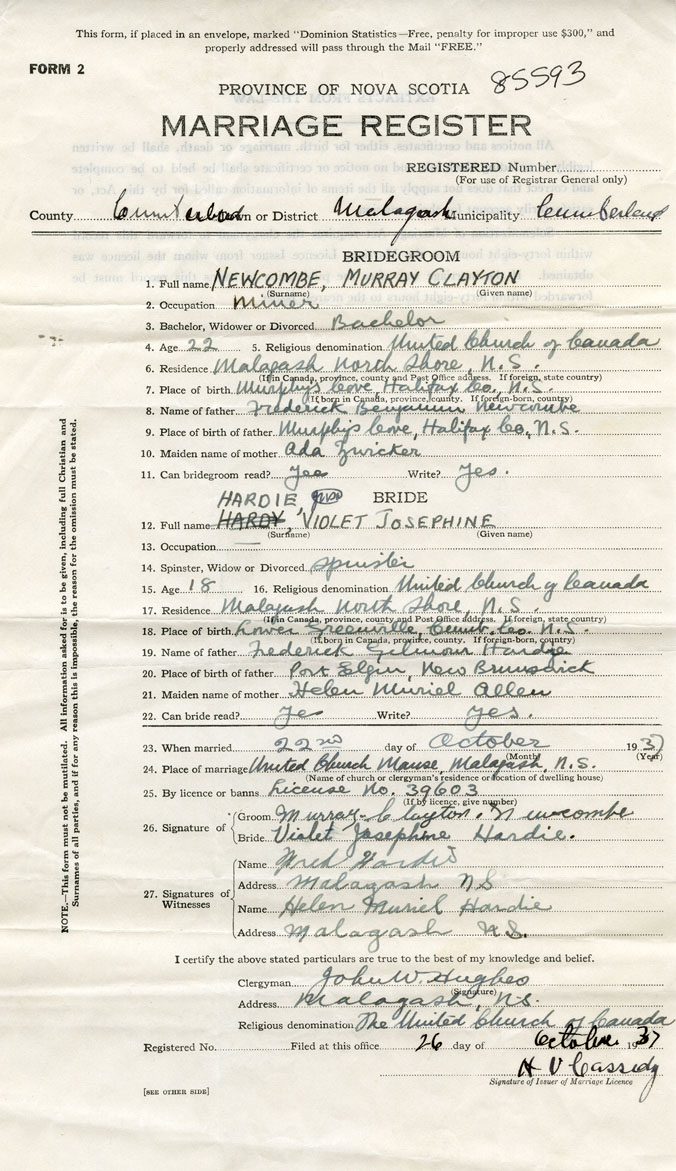 This form, if placed in an envelope, marked "Dominion Statistics—Free, penalty for improper use $300," and
properly addressed will pass through the Mail "FREE."
FORM 2
PROVINCE OF NOVA SCOTIA 85593
MARRIAGE REGISTER
REGISTERED Number
(For use of Registrar General only)
County Cumberland Town or District Malagash Municipality Cumberland
BRIDEGROOM
1. Full name NEWCOMBE, MURRAY CLAYTON
(Surname) (Given name)
2. Occupation Miner
3. Bachelor, Widower or Divorced Bachelor
4. Age 22 5. Religious denomination United Church of Canada
6. Residence Malagash North Shore, N.S.
(If in Canada, province, county and Post Office address. If foreign, state country)
7. Place of birth Murphy's Cove Halifax Co., N.S.
(If born in Canada, province, county. If foreign-born, country)
8. Name of father Frederick Benjamin Newcombe
9. Place of birth of father Murphy's Cove, Halifax Co., N.S.
10. Maiden name of mother Ada Zwicker
11. Can bridegroom read? Yes Write? Yes.
HARDIE, BRIDE
12. Full name HARDY, VIOLET JOSEPHINE
(Surname) (Given name)
13. Occupation
14. Spinster, Widow or Divorced Spinster
15. Age 18 16. Religious denomination United Church of Canada
17. Residence Malagash North Shore, N.S.
(If in Canada, province, county and Post Office address. If foreign, state country)
18. Place of birth Lower Greenville, Cumb. Co. N.S.
(If born in Canada, province, county. If foreign-born, country)
19. Name of father Frederick Gilmour Hardie
20. Place of birth of father Port Elgin, New Brunswick
21. Maiden name of mother Helen Muriel Allen
22. Can bride read? Yes Write? Yes.
23. When married 22nd day of October 1937
(Month) (Year)
24. Place of marriage United Church Manse, Malagash, N.S.
(Name of church or clergyman's residence or location of dwelling house)
25. By licence or banns License No. 39603
(If by licence, give number)
26. Signature of Groom Murray Clayton. Newcombe
Bride Violet Josephine Hardie.
27. Signatures of Witnesses
Name Fred Hardie
Address Malagash NS
Name Helen Muriel Hardie
Address Malagash N.S.
I certify the above stated particulars are true to the best of my knowledge and belief.
Clergyman John W. Hughes
(Signature)
Address Malagash, N.S.
Religious denomination The United Church of Canada
Registered No. Filed at this office 26 day of October 1937
H V Cassidy
Signature of Issuer of Marriage Licence
[SEE OTHER SIDE]
NOTE.—This form must not be mutilated. All information asked for is to be given, including full Christian and
Surnames of all parties, and if for any reason this is impossible, the reason for the omission must be stated.